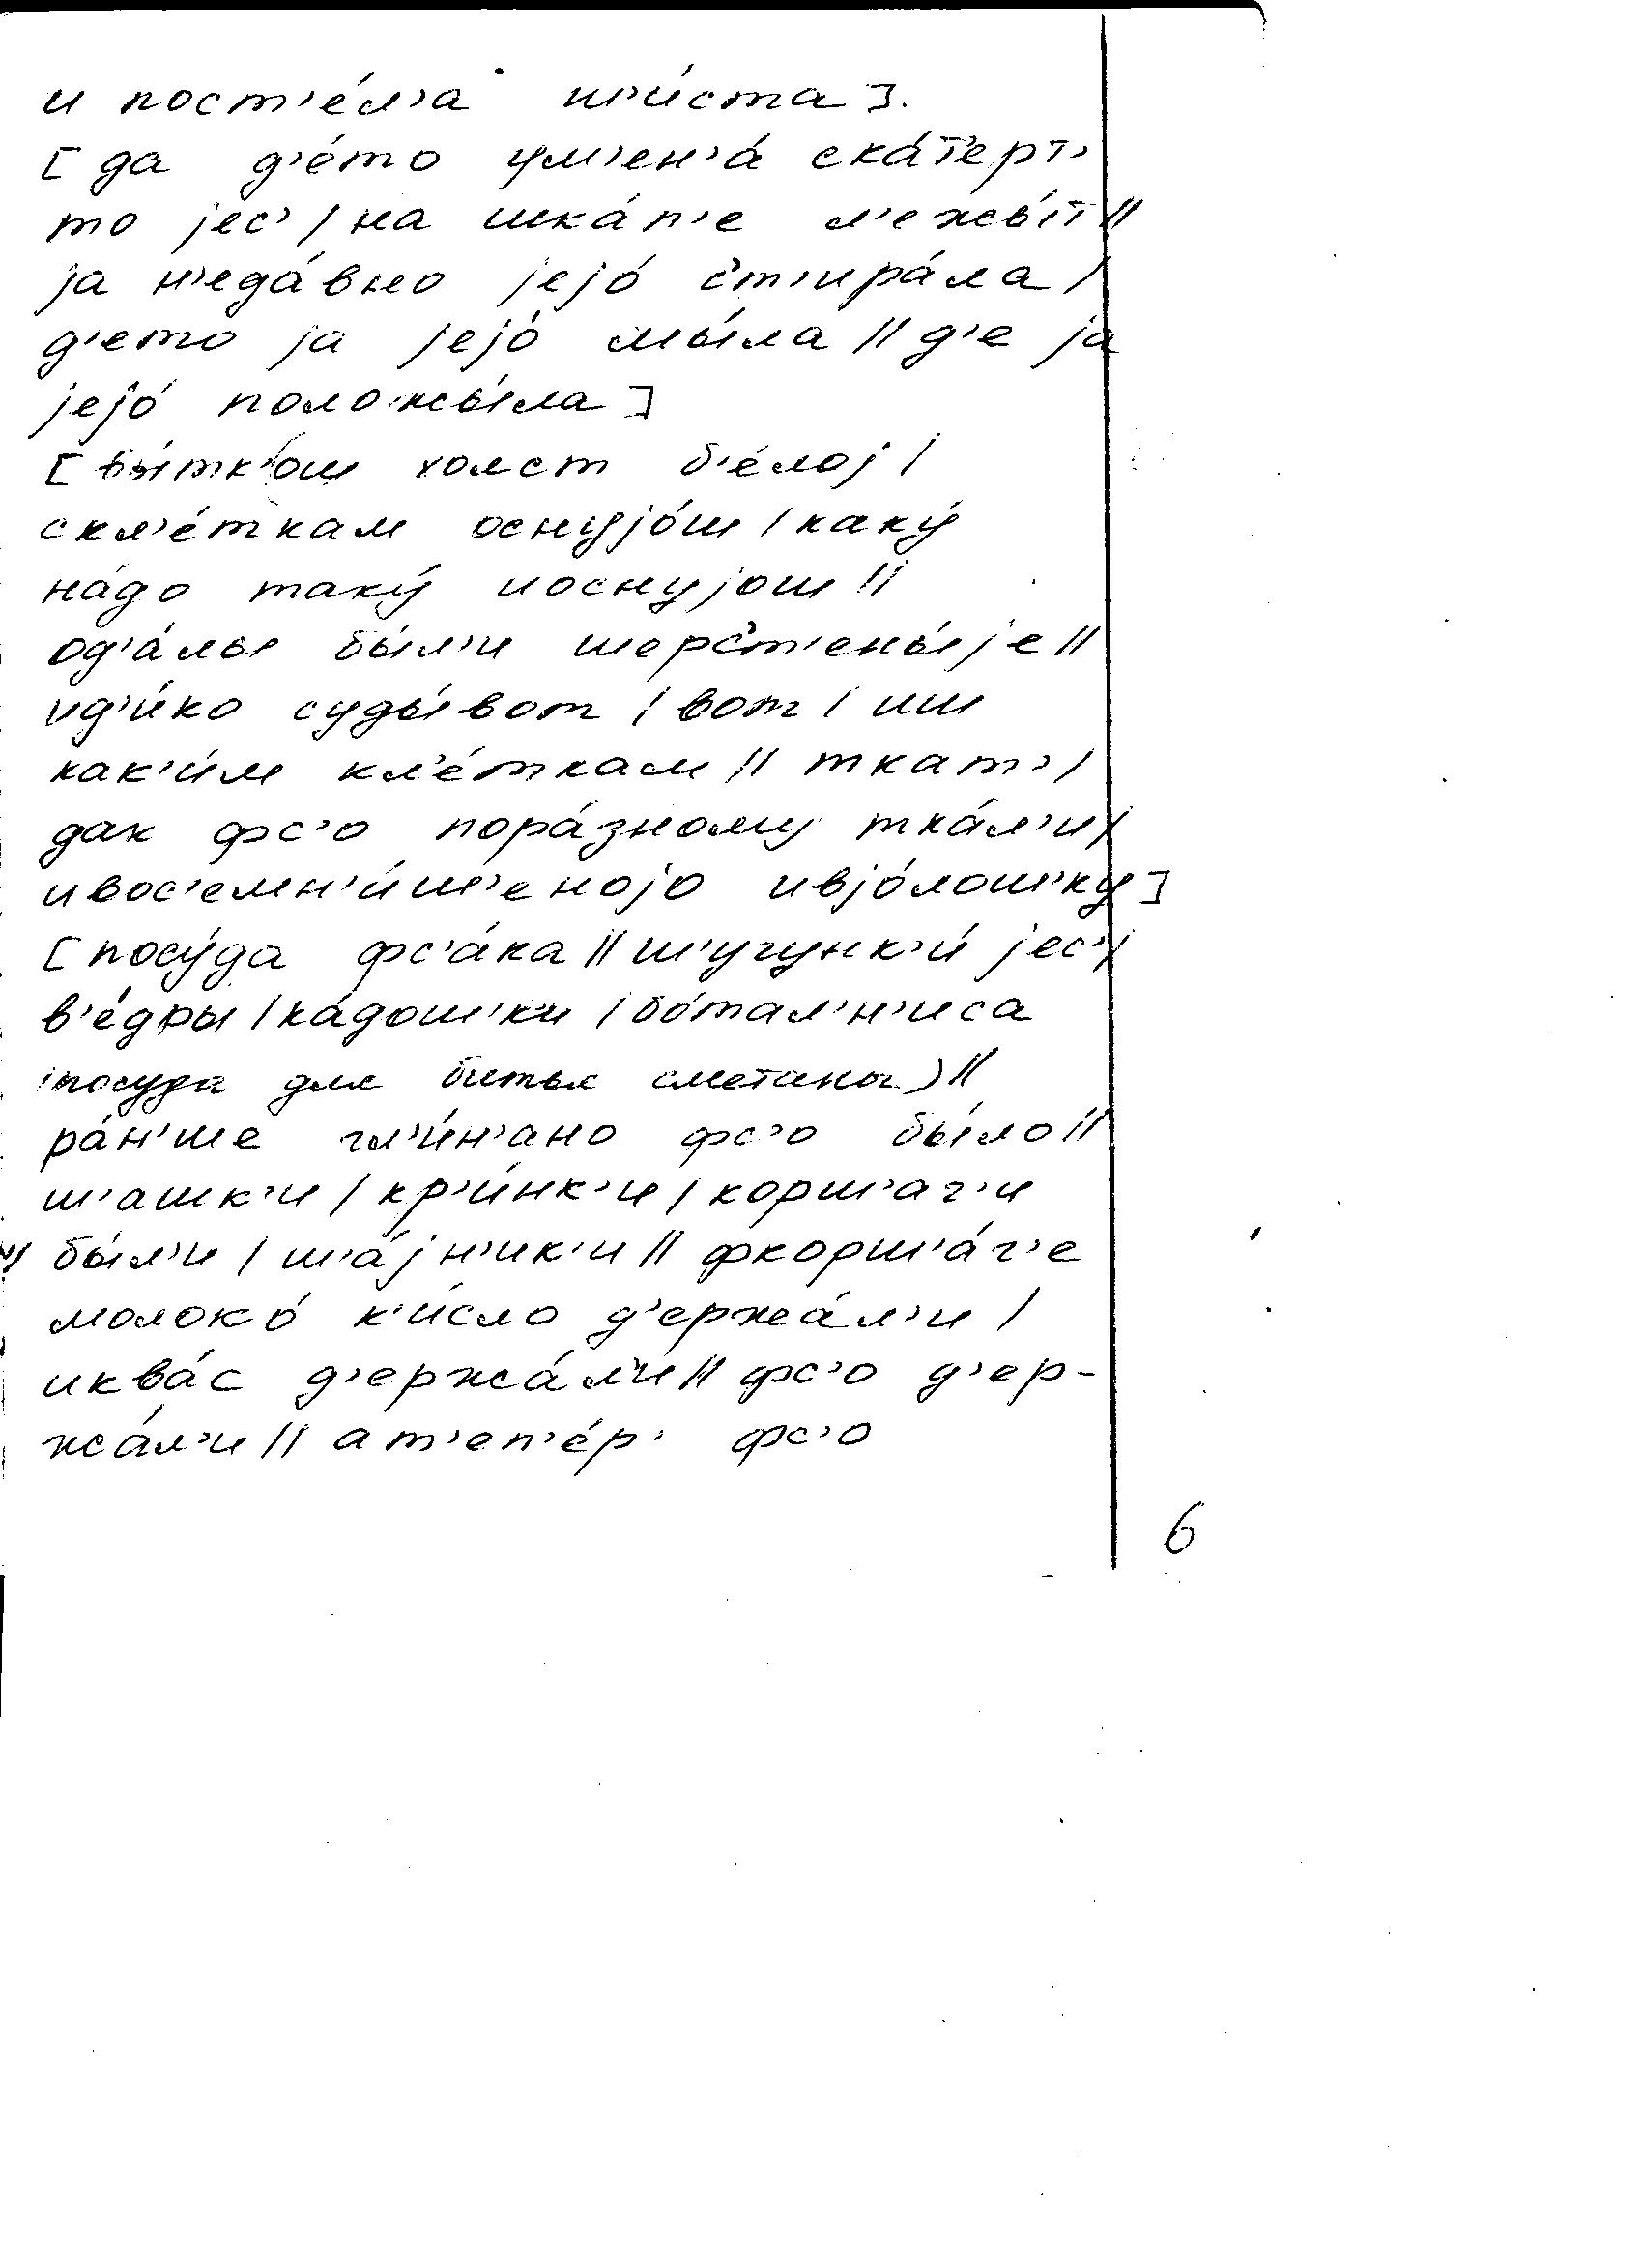 и пост'е́л'а ш'и́ста].
[да д'е́то ум'ен'а́ ска́т'ерт'
то jес' / на шка́п'е л'ежы́т //
jа н'еда́вно jејо́ с'т'ира́ла /
д'ето jа jејо́ мы́ла // д'е jа
jејо́ положы́ла]
[вы́тк'ош холст б'е́лоj /
скл'е́ткам оснуjо́ш / каку́
на́до таку́ иоснуjош //
од'а́лы бы́л'и шерс'т'ены́jе //
ид'и́ко суды́вот / вот / иш
как'и́м кл'е́ткам // ткат' /
дак фс'о пора́зному тка́л'и /
ивос'емн'и́ш'еноjо ивjо́лош'ку]
[посу́да фс'а́ка // ш'угунк'и́ jес' /
в'е́дры / ка́дош'ки / бо́тал'н'иса
(посуда для битья сметаны) //
ра́н'ше гл'и́н'ано фс'о бы́ло //
ш'ашк'и / кр'и́нк'и / корш'аг'и
бы́л'и / ш'а́jн'ик'и // фкорш'а́г'е
молоко́ к'и́сло д'ержа́л'и /
иква́с д'ержа́л'и // фс'о д'ер-
жа́л'и // ат'еп'е́р' фс'о
6